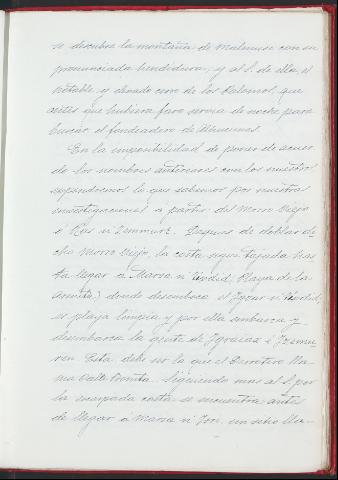 se descubre la montaña de Malmuse con su
pronunciada hendidura, y al S. de ella, el
notable y elevado cono de los Palomos, que
antes que hubiera faro servia de noche para
buscar el fondeadero de Alhucemas.
En la imposibilidad de poner de acuer
do los nombres anteriores con los nuestros
expondremos lo que sabemos por nuestras
investigaciones á partir del Morro Viejo
ó Ras Despues de doblar di-
cho Morro Viejo, la costa sigue tajada has
ta llegar á Marsa n' Playa de la
donde desemboca el n'
es playa limpia y por ella embarca y
desembarca la gente de
Esta debe ser la que el Derrotero lla-
ma Valle Bonita. Siguiendo mas al S. por
la escarpada costa se encuentra antes
de llegar á Marsa n' un sitio lla-